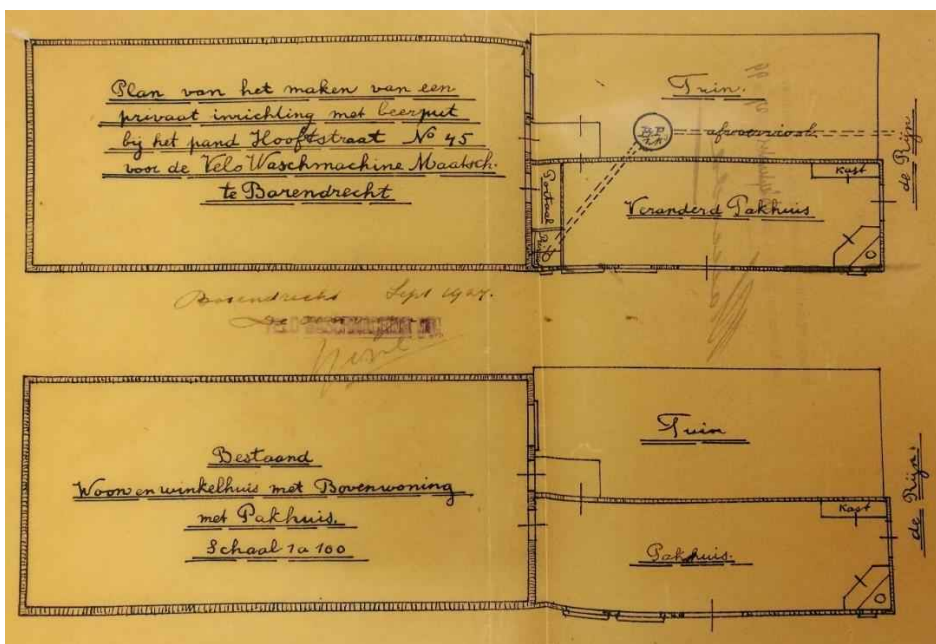 Plan van het maken van een
privaat inrichting met beerput
bij het pand Hooftstraat No 45
voor de Velo Waschmachine Maatsch.
te Barendrecht
Tuin.
B.P.
afvoerriool.
de Rijn
Portaal
Kast
Veranderd Pakhuis
Barendrecht Sept
Bestaand
Woon en winkelhuis met Bovenwoning
met Pakhuis.
Schaal 1 a 100
Tuin
de Rijn.
Kast
Pakhuis.